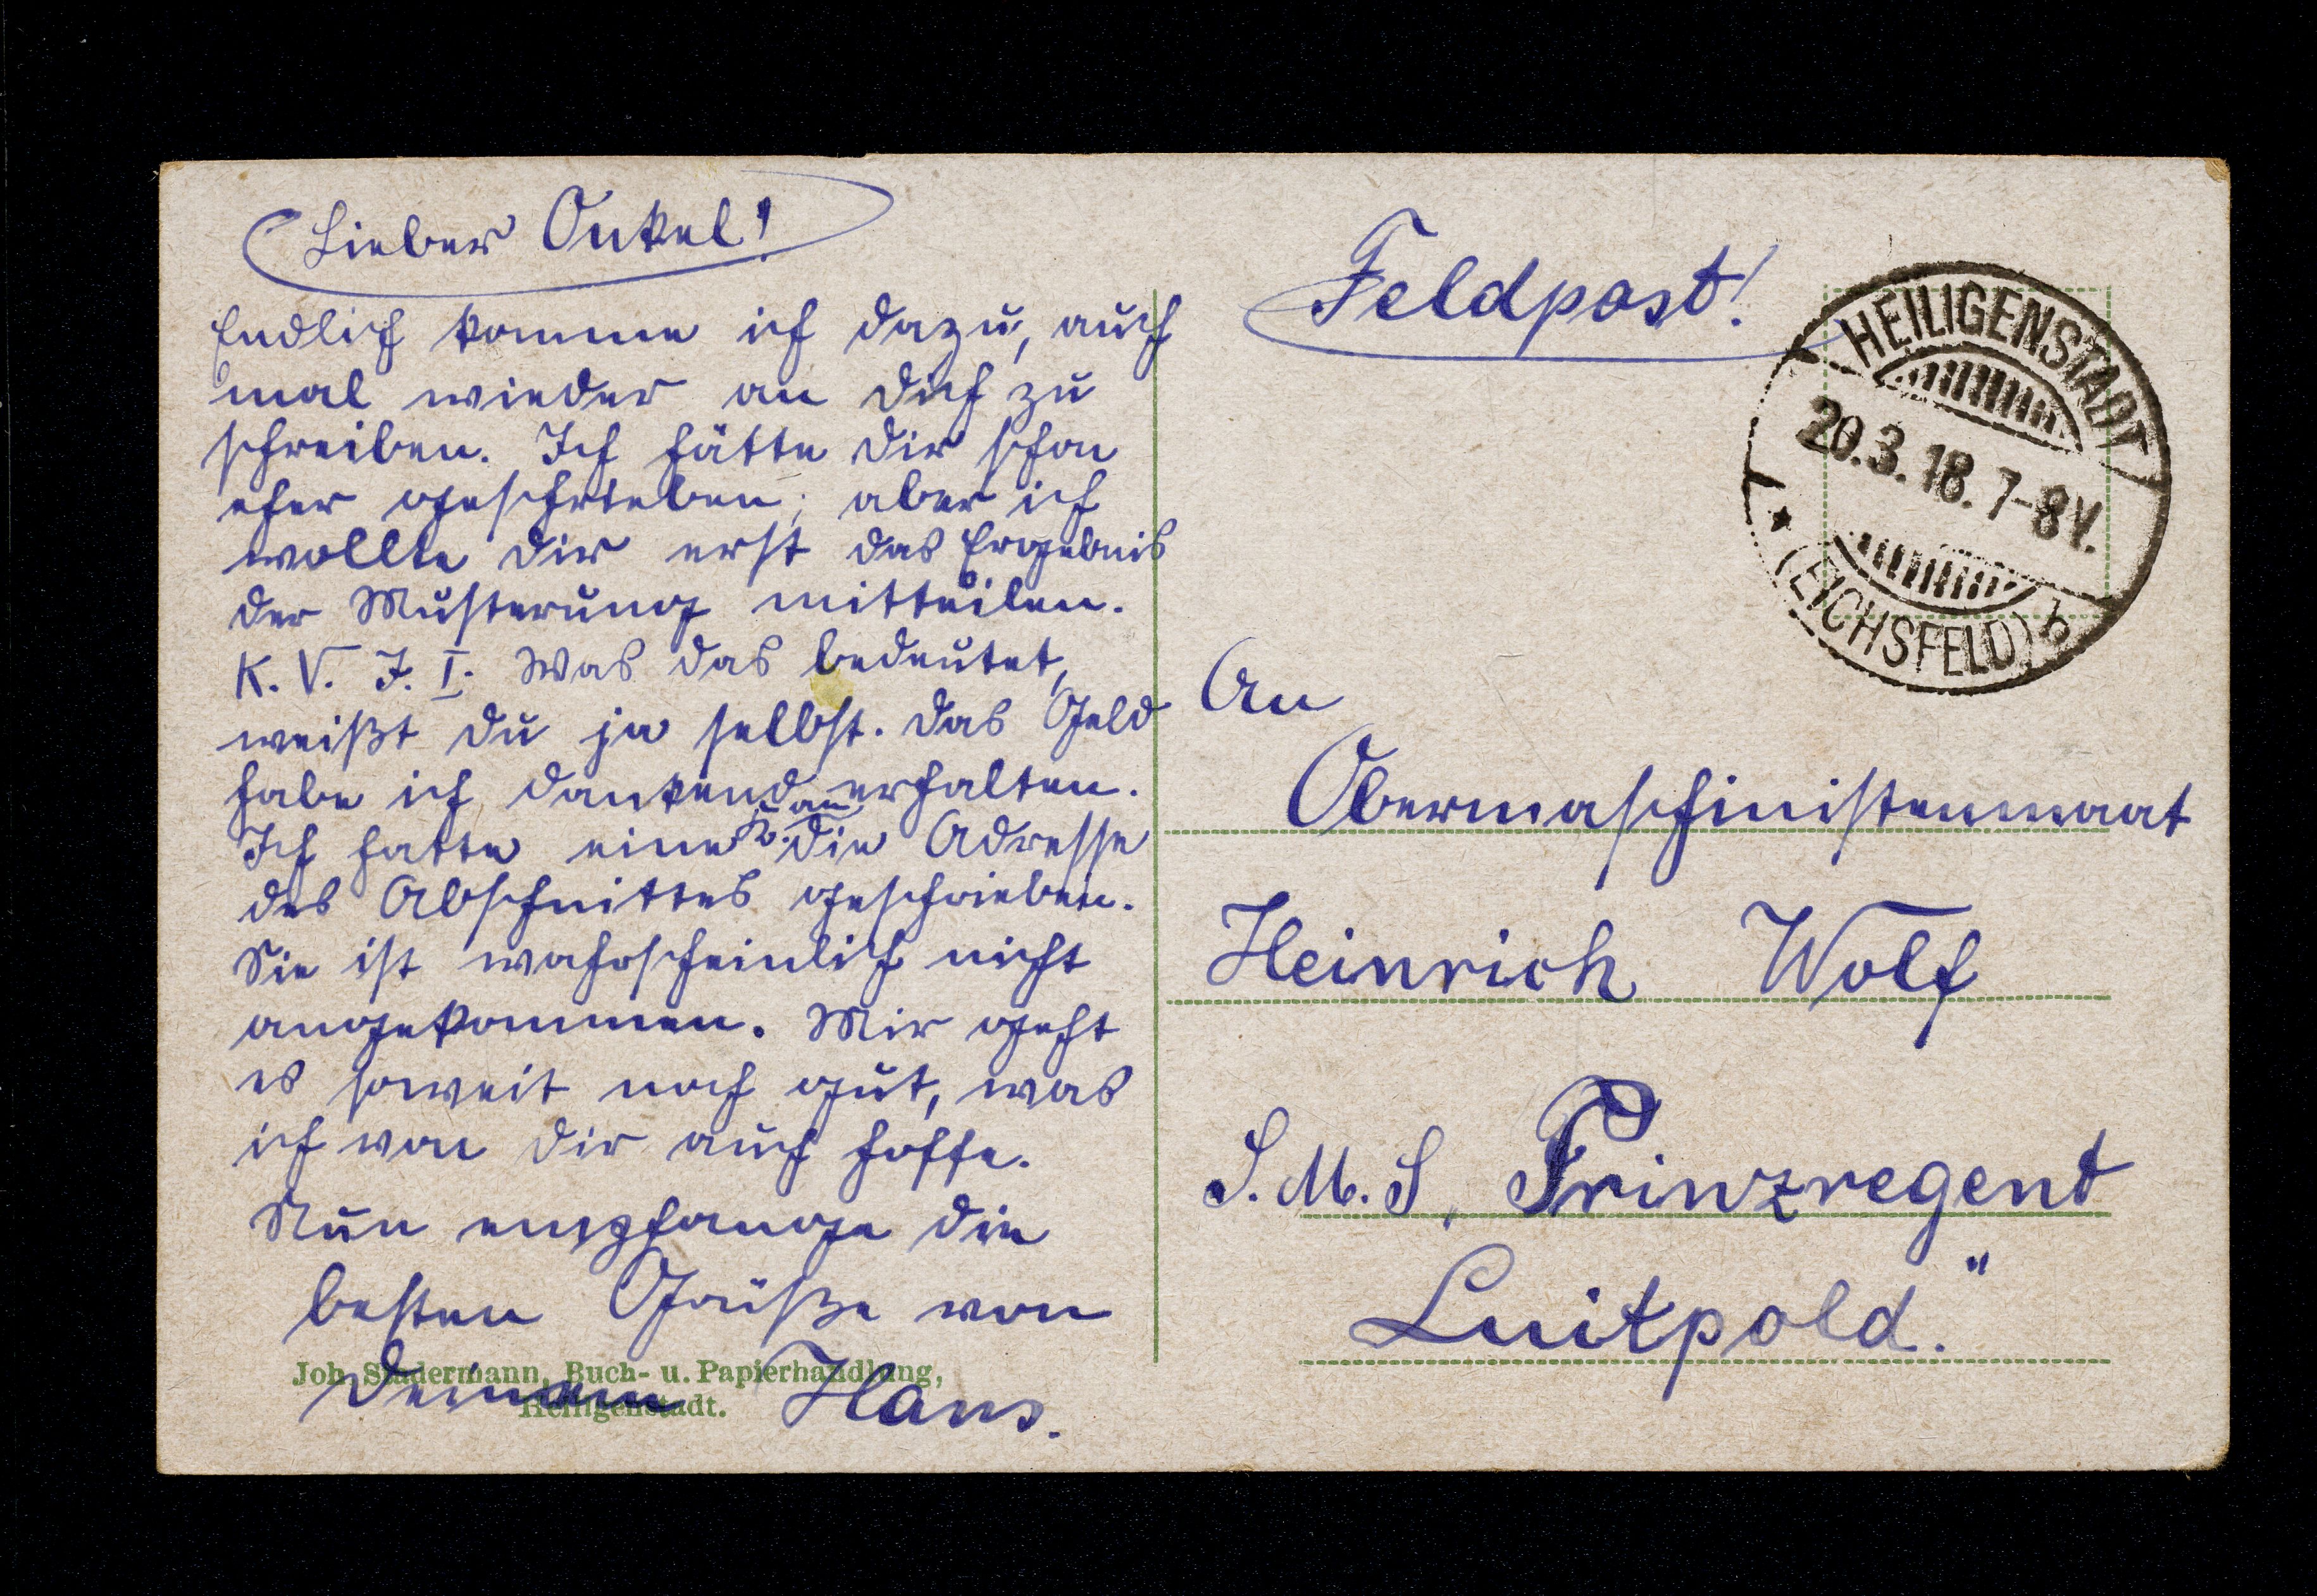 Lieber Onkel!
Endlich komme ich dazu, auch
mal wieder an dich zu
schreiben. Ich hätte dir schon
eher geschrieben; aber ich
wollte dir erst das Ergebnis
der Musterung mitteilen.
K. V. J. I. Was das bedeutet,
weißt du ja selbst. Das Geld
habe ich dankend erhalten.
Ich hatte eine K. an die Adresse
des Abschnittes geschrieben.
Sie ist wahrscheinlich nicht
angekommen. Mir geht
es soweit noch gut, was
ich von dir auch hoffe.
Nun empfange die
besten Grüße von
Deinem Hans.
Joh. Sündermann, Buch- u. Papierhandlung,
Heiligenstadt.
Feldpost!
HEILIGENSTADT
20.3.18.7-8V.
* (EICHSFELD) b
An
Obermaschinistenmaat
Heinrich Wolf
S. M. S. Prinzregent
Luitpold."